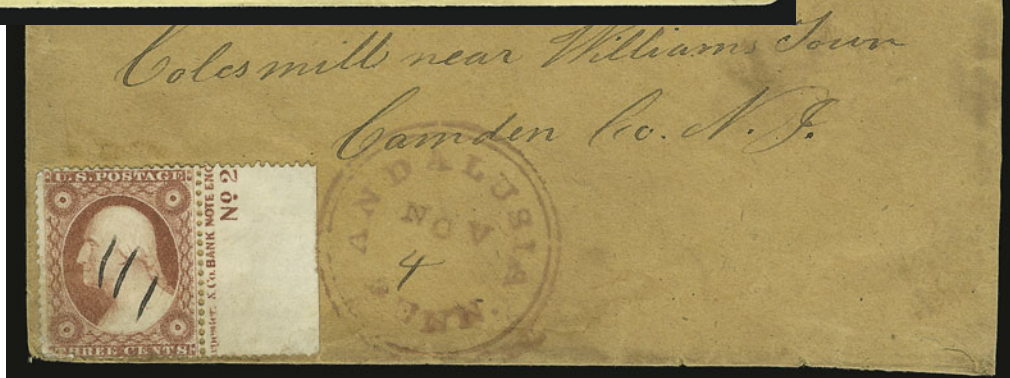 Colesmills near Williams Town
Camden Co. N. J.
U.S. POSTAGE
THREE CENTS
& Co. BANK NOTE ENG
No 2
ANDALUSIA
NOV
4